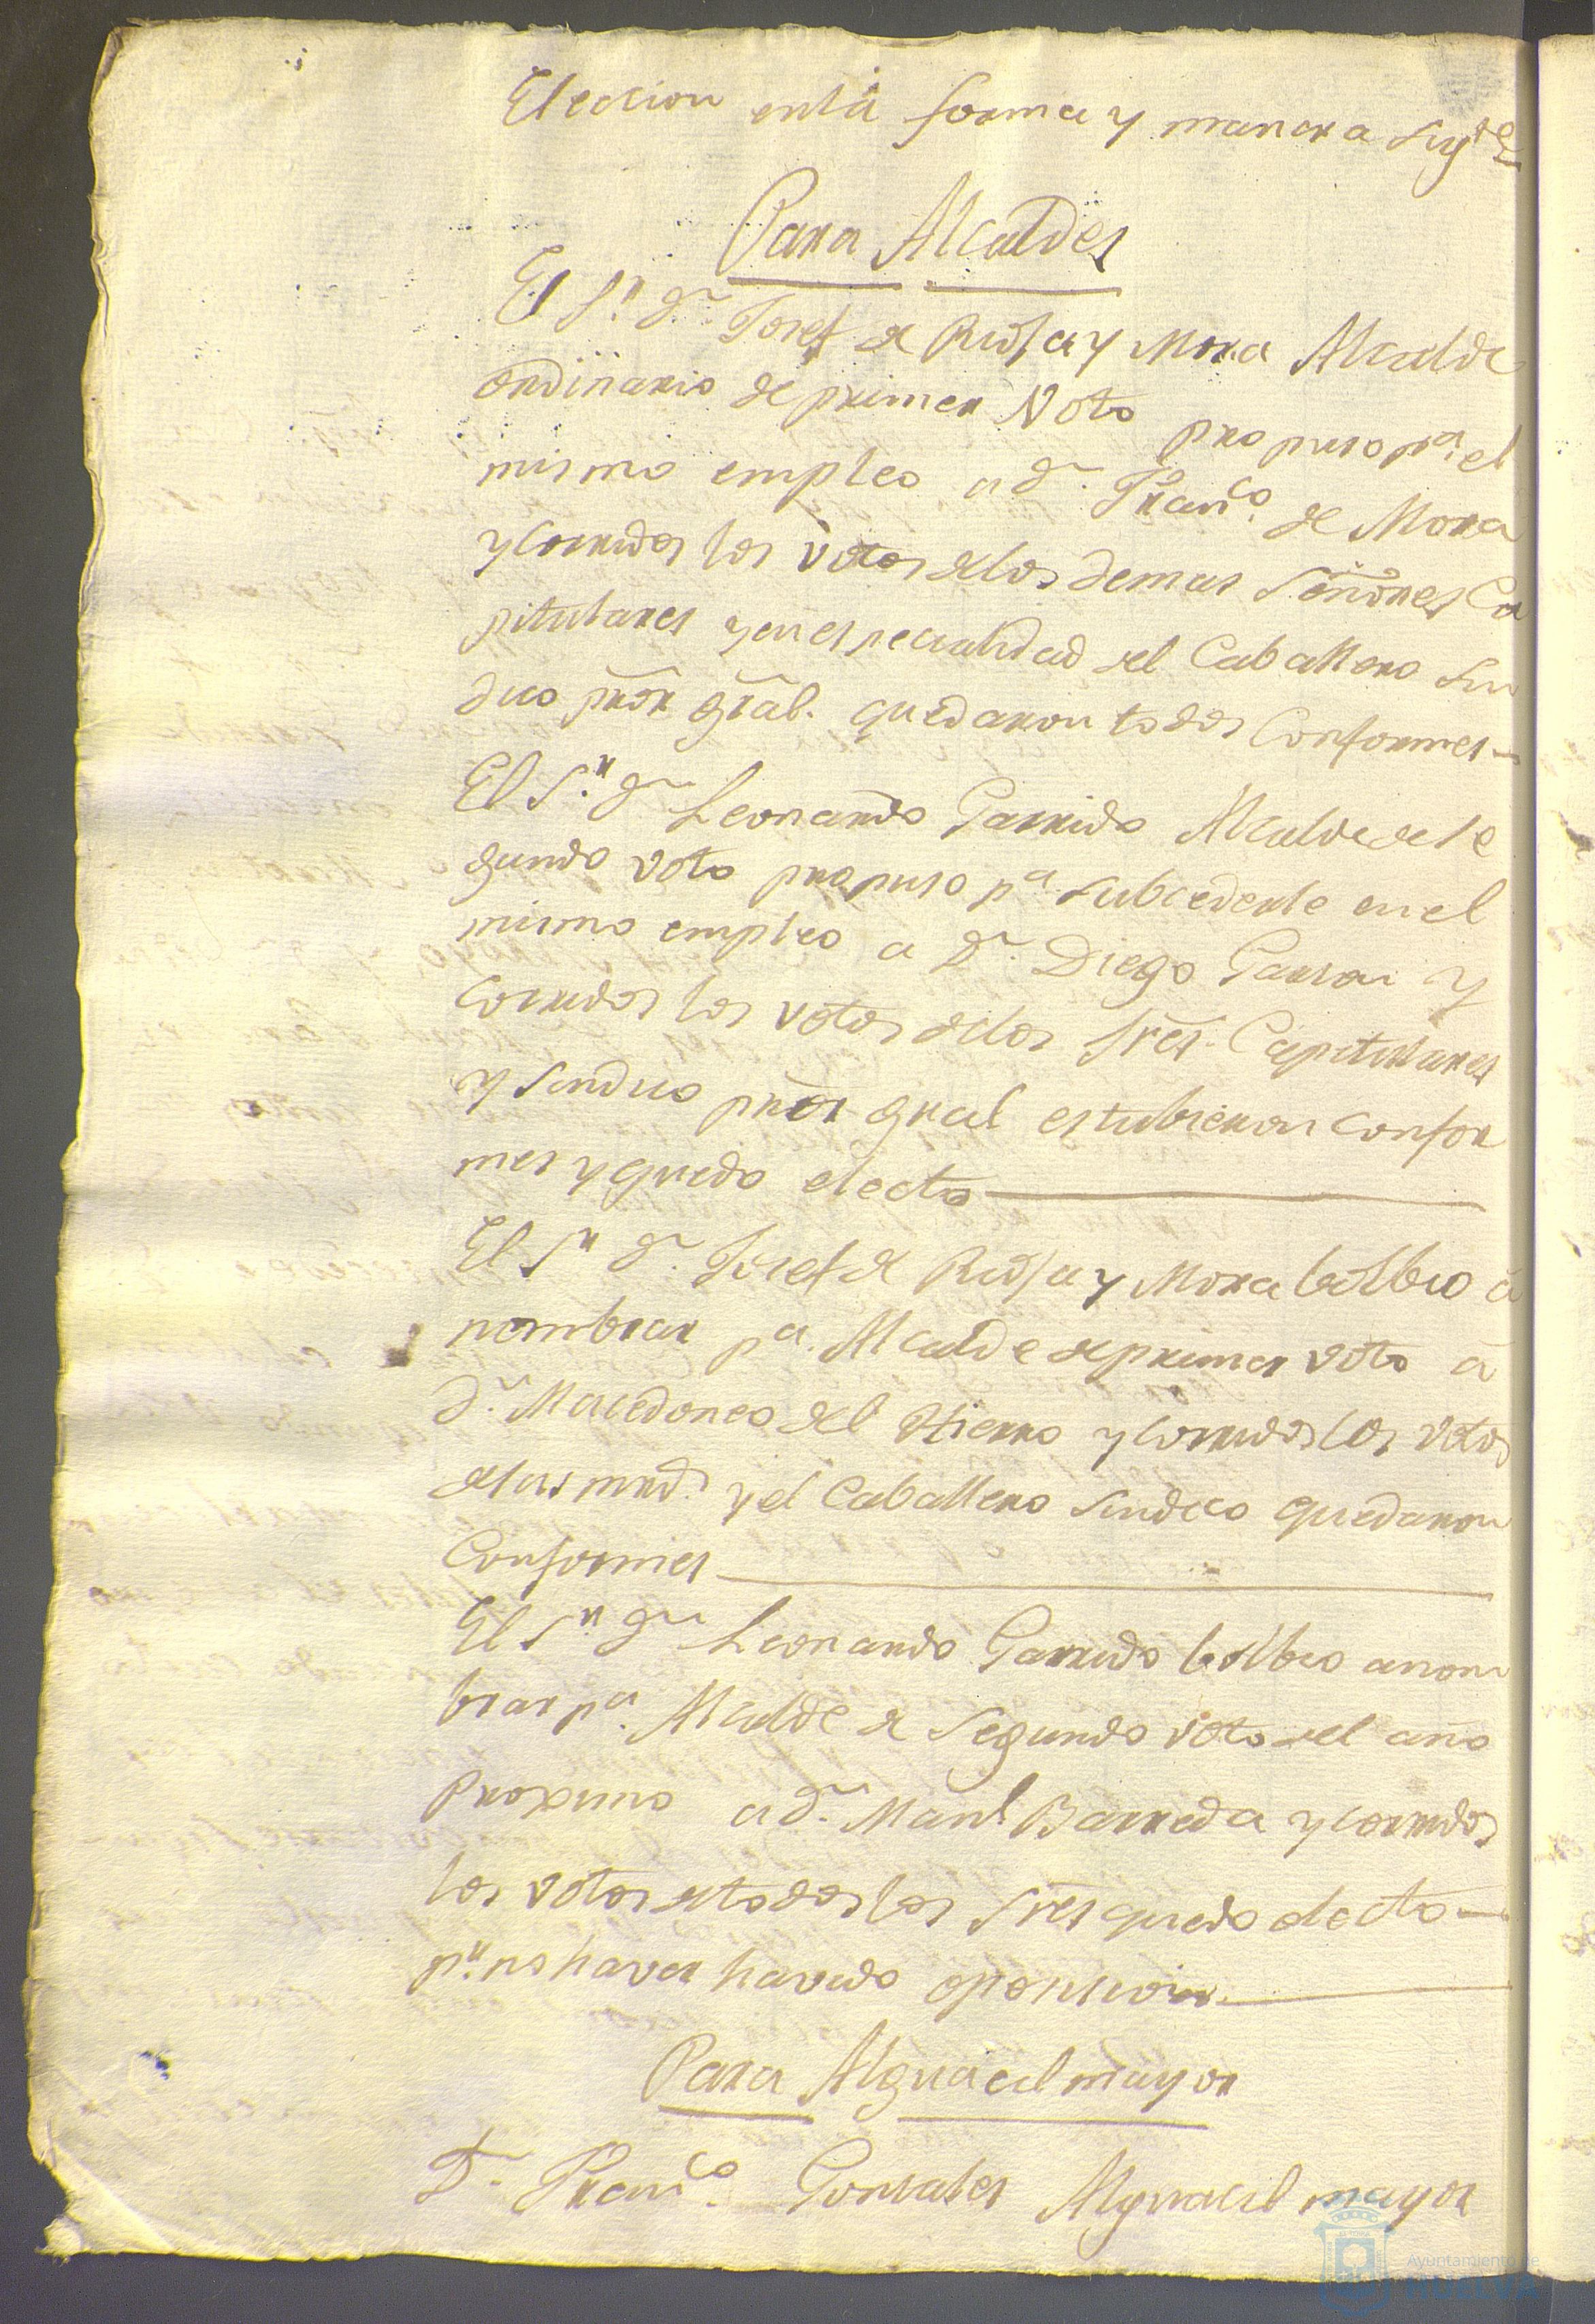 Eleccion enlâ forma y manera sigte
Para Alcaldes
El Sr. Dn. Josef de Rioja y Mora Alcalde
ordinario de primer Voto propuso pa. el
mismo empleo a Dn. Franco. de Mora
y corridos los votos delos demas Señores Ca
pitulares y en especialidad del Caballero Sin
dico pror gral. quedaron todos conformes
El Sr. Dn. Leonardo Garrido Alcalde de se
gundo voto propuso pa. subcederle en el
mismo empleo a Dn. Diego Garzon y
corridos los votos delos Sres. Capitulares
y Sindico pror gral estubieron confor
mes y quedo electo
El Sr Dn. Josef de Rioja y Mora bolbio a
nombrar pa. Alcalde de primer voto a
Dn. Macedoneo del Hierro y corridos los votos
de sus mrds. y el Caballero Sindico quedaron
Conformes
El Sr. Dn Leonardo Garrido bolbio a nom
brar pa. Alcalde de Segundo voto del año
proximo a Dn. Manl. Barreda y corridos
los votos de todos los Sres quedo electo
pr. no haver havido oposicion
Para Alguacil mayor
Dn. Franco. Gonsales Alguacil mayor
Ayuntamiento de
HUELVA